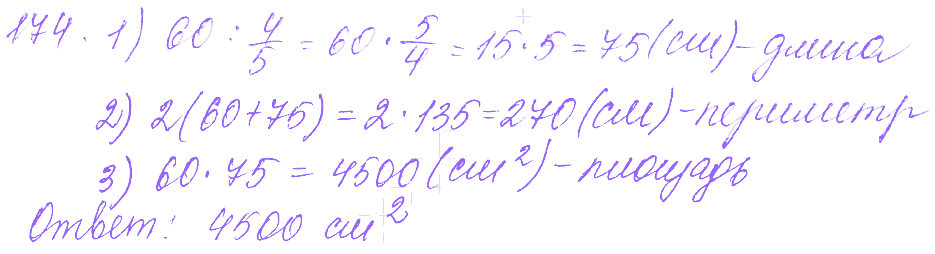 174. 1) 60 : 4/5 = 60 · 5/4 = 15 · 5 = 75 (см) - длина
2) 2(60+75) = 2 · 135 = 270 (см) - периметр
3) 60 · 75 = 4500 (см²) - площадь
Ответ: 4500 см²